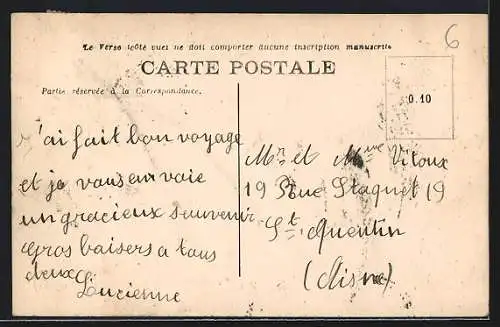 6
Le Verso (côté vue) ne doit comporter aucune inscription manuscrite
CARTE POSTALE
Partie réservée à la Correspondance.
0.10
J'ai fait bon voyage
et je vous en voie
un gracieux souvenir
Gros baisers a tous
deux
Lucienne
Mr et Mme Vitoux
19 Rue Staquet 19
St Quentin
(Aisne)